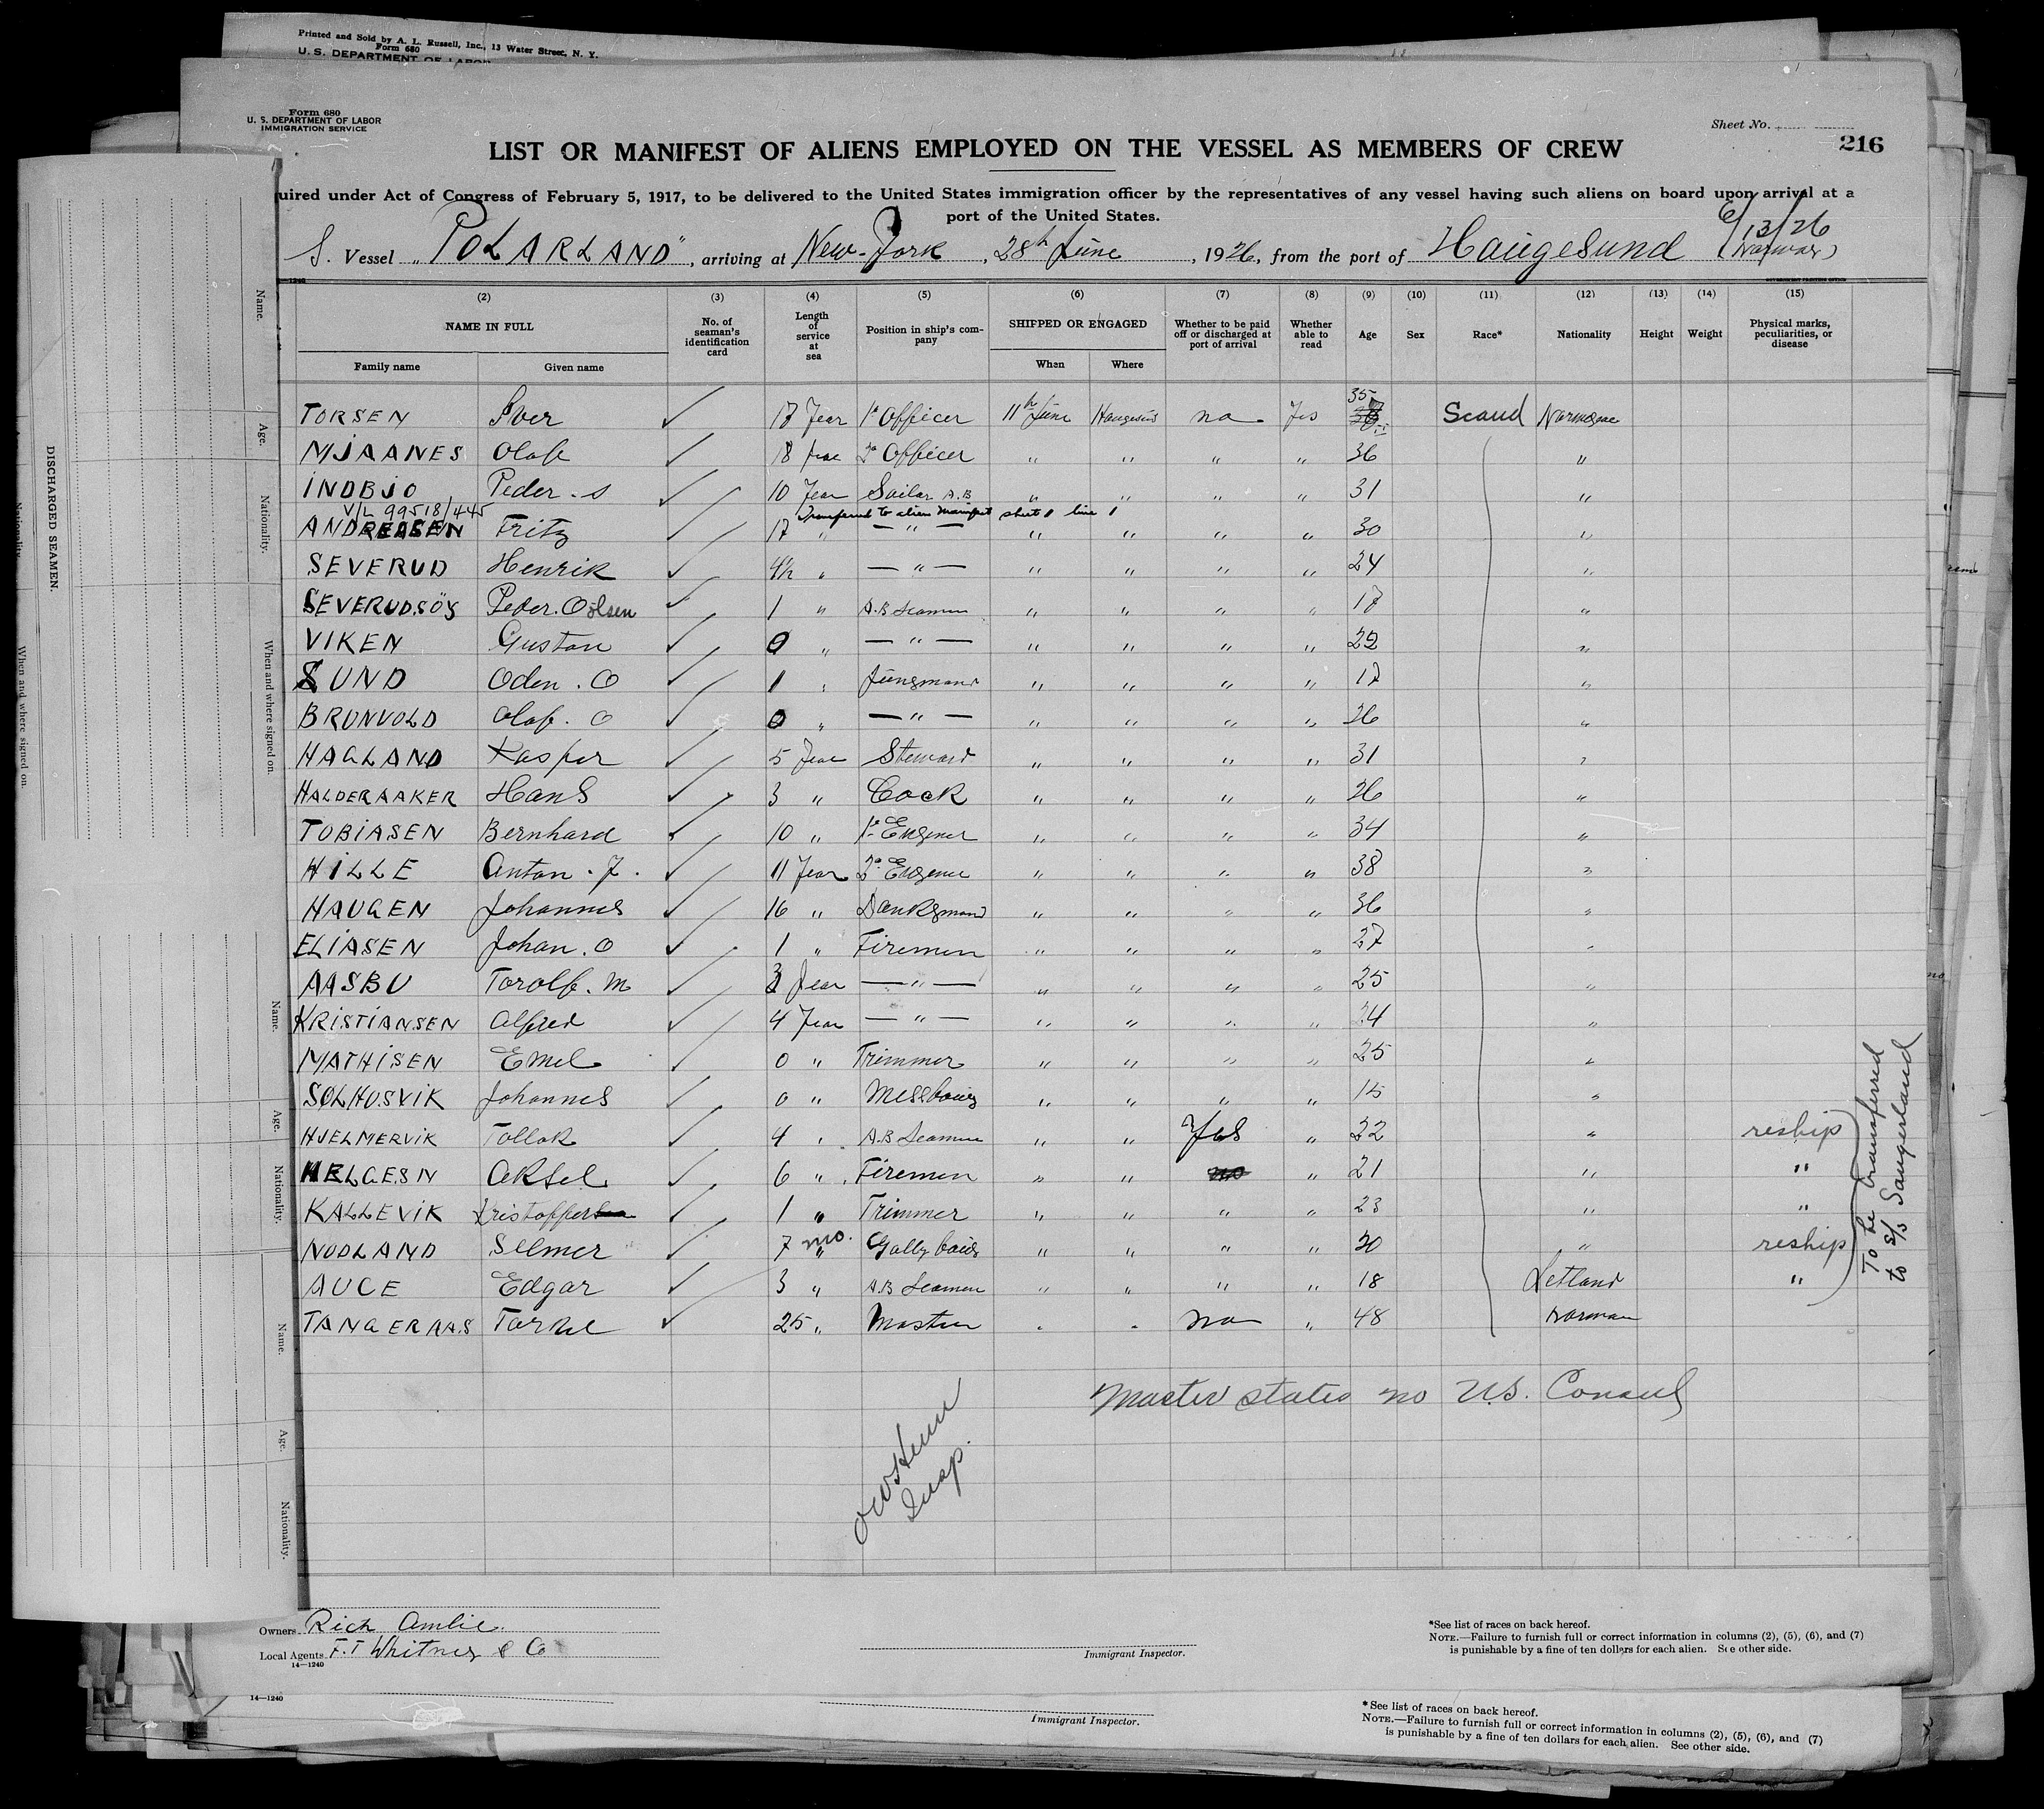 Printed and Sold by A. L. Russell, Inc., 13 Water Street, N. Y.
Form 680
U. S. DEPARTMENT OF LABOR
Form 680
U. S. DEPARTMENT OF LABOR
IMMIGRATION SERVICE
Sheet No.
216
LIST OR MANIFEST OF ALIENS EMPLOYED ON THE VESSEL AS MEMBERS OF CREW
uired under Act of Congress of February 5, 1917, to be delivered to the United States immigration officer by the representatives of any vessel having such aliens on board upon arrival at a
port of the United States.
6/13/26
S. Vessel "POLARLAND", arriving at New-York, 28th June, 1926, from the port of Haugesund (Norway)
(2) (3) (4) (5) (6) (7) (8) (9) (10) (11) (12) (13) (14) (15)
NAME IN FULL No. of seaman's identification card Length of service at sea Position in ship's company SHIPPED OR ENGAGED Whether to be paid off or discharged at port of arrival Whether able to read Age Sex Race* Nationality Height Weight Physical marks, peculiarities, or disease
Family name Given name When Where
TORSEN Iver ✓ 17 Year 1st Officer 11th June Haugesund no Yes 35 Scand Norwegae
MJAANES Olaf ✓ 18 Year 2d Officer " " " " 36 "
INDBJO Peder. S ✓ 10 Year Sailor A.B " " " " 31 "
V/L 99518/445 Transferred to alien manifest sheet 1 line 1
ANDREASEN Fritz ✓ 17 " — " — " " " " 30 "
SEVERUD Henrik ✓ 4½ " — " — " " " " 24 "
SEVERUDSÖY Peder. Oolsen ✓ 1 " A.B Seamen " " " " 17 "
VIKEN Gustan ✓ 0 " — " — " " " " 22 "
SUND Oden. O ✓ 1 " Jungmand " " " " 17 "
BRUNVOLD Olaf. O ✓ 0 " — " — " " " " 26 "
HAGLAND Kasper ✓ 5 Year Steward " " " " 31 "
HALDERAAKER Hans ✓ 3 " Cock " " " " 26 "
TOBIASEN Bernhard ✓ 10 " 1st Engener " " " " 34 "
HILLE Anton. J. ✓ 11 Year 2d Engener " " " " 38 "
HAUGEN Johannes ✓ 16 " Dankymand " " " " 36 "
ELIASEN Johan. O ✓ 1 " Firemen " " " " 27 "
AASBU Torolf. M ✓ 3 Year — " — " " " " 25 "
KRISTIANSEN Alfred ✓ 4 Year — " — " " " " 24 "
MATHISEN Emel ✓ 0 " Trimmer " " " " 25 "
SOLHUSVIK Johannes ✓ 0 " Messbouy " " " " 15 "
HJELMERVIK Tollak ✓ 4 " A.B Seamen " " Yes " 22 " reship
HELGESN Aksel ✓ 6 " Firemen " " no " 21 " "
KALLEVIK Kristoffer ✓ 1 " Trimmer " " " " 23 " "
NODLAND Selmer ✓ 7 mo. Gallyboug " " " " 20 " reship
AUCE Edgar ✓ 3 " A.B Seamen " " " " 18 Letland "
TANGERAAS Torkel ✓ 25 " Master " " no " 48 Norman
To be transferred
to S/S Saugerland
Master states no U.S. Consul
Insp.
Owners Rich Amlie.
Local Agents F.T Whitney & Co
14—1240
Immigrant Inspector.
*See list of races on back hereof.
NOTE.—Failure to furnish full or correct information in columns (2), (5), (6), and (7)
is punishable by a fine of ten dollars for each alien. See other side.
14—1240
Immigrant Inspector.
*See list of races on back hereof.
NOTE.—Failure to furnish full or correct information in columns (2), (5), (6), and (7)
is punishable by a fine of ten dollars for each alien. See other side.
DISCHARGED SEAMEN.
Name.
Age.
Nationality.
When and where signed on.
Name.
Age.
Nationality.
Name.
Age.
Nationality.
Nationality.
When and where signed on.